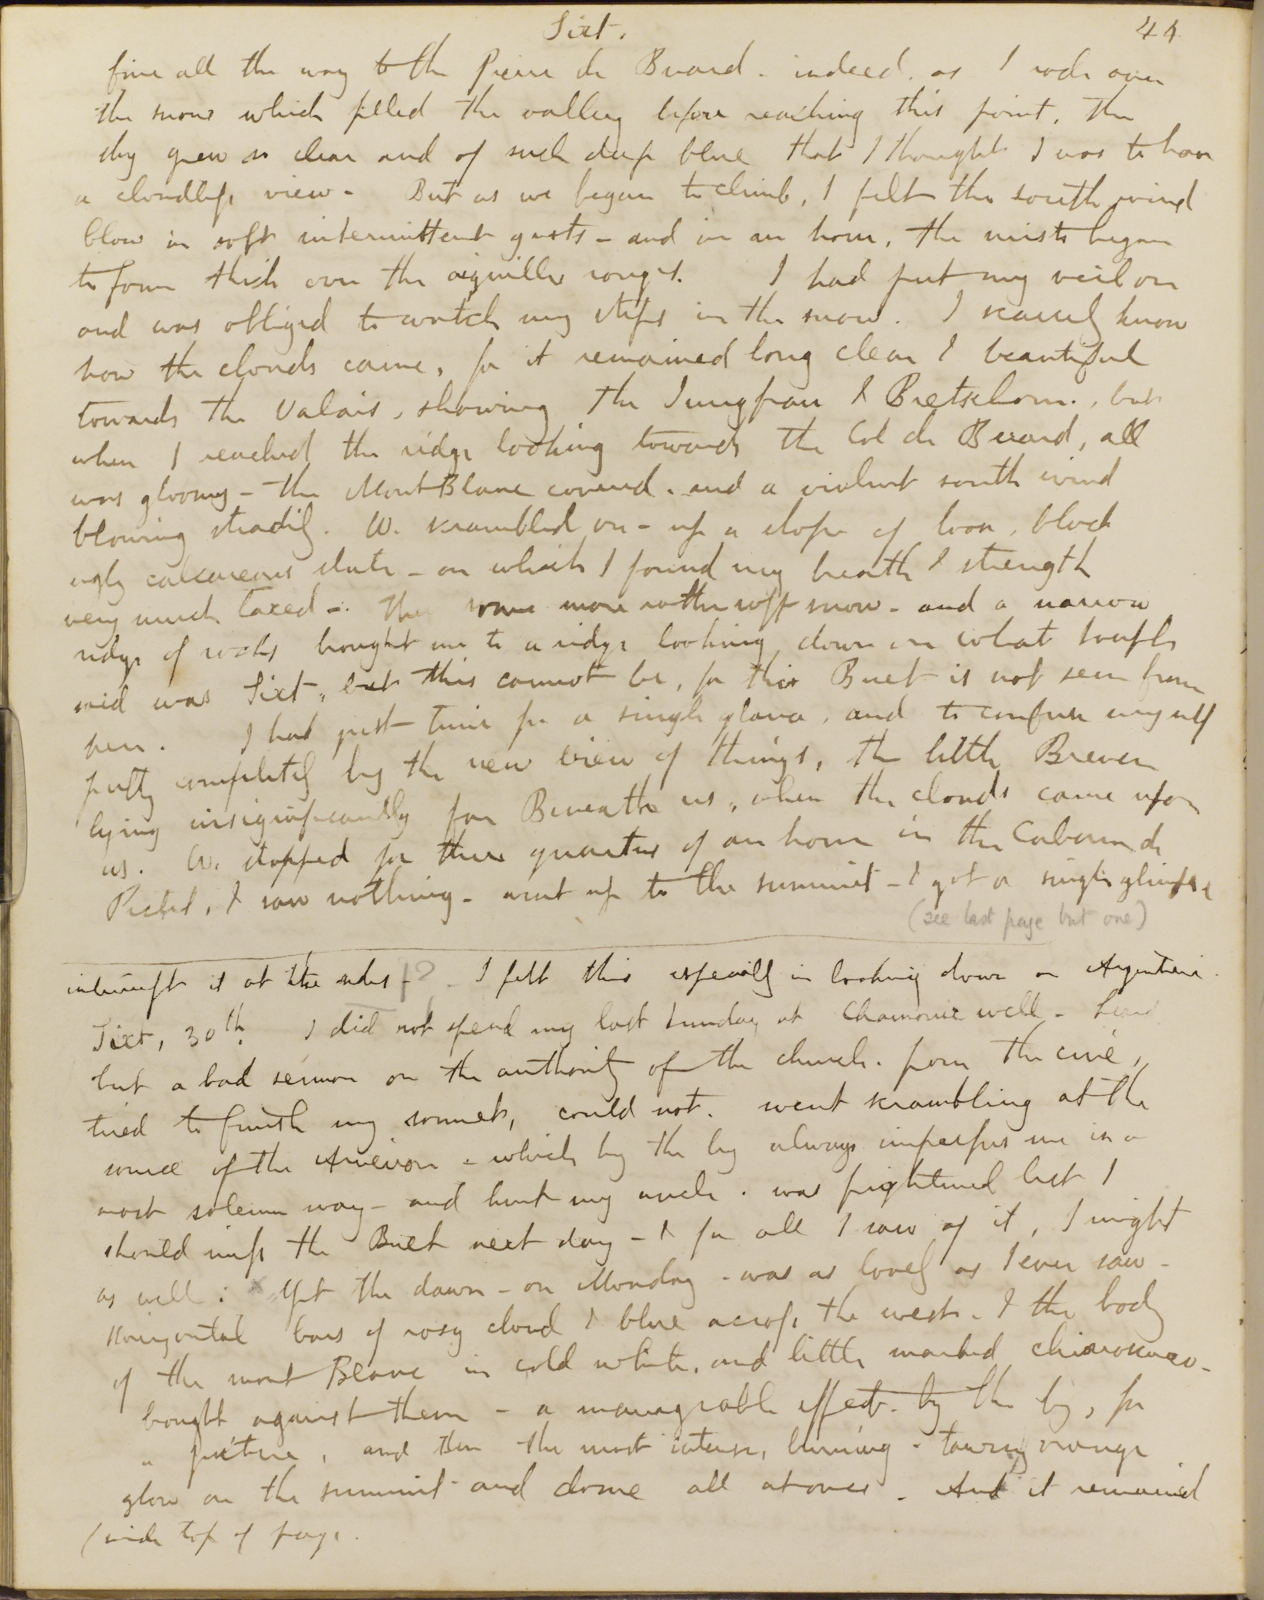 Sixt.
44
fine all the way to the Pierre de Buard. indeed. as I rode over
the snow which filled the valley before reaching this point, the
sky grew so clear and of such deep blue that I thought I was to have
a cloudless view - But as we began to climb, I felt the south wind
blow in soft intermittent gusts - and in an hour, the mists began
to form thick over the aiguilles rouges. I had put my veil on
and was obliged to watch my steps in the snow. I scarcely know
how the clouds came, for it remained long clear & beautiful
towards the Valais, showing the Jungfrau & Bietschorn., but
when I reached the ridge looking towards the Col de Buard, all
was gloomy - the Mont Blanc covered. and a violent south wind
blowing steadily. W. scrambled on - up a slope of loose, black
ugly calcareous slate - on which I found my breath & strength
very much taxed -. Then some more rather soft snow - and a narrow
ridge of rocks brought me to a ridge looking down on what
said was Sixt, but this cannot be, for the Buet is not seen from
here. I had just time for a single glance, and to confuse myself
pretty completely by the new view of things, the little Breven
lying insignificantly far Beneath us, when the clouds came upon
us. W. stopped for three quarters of an hour in the Cabane de
Pictet, & saw nothing - went up to the summit - I got a single glimpse
(see last page but one)
interrupt it at the sides [?]. I felt this especially in looking down on Argentiere.
Sixt, 30th. I did not spend my last Sunday at Chamonix well -
but a bad sermon on the authority of the church. from the curé,
tried to finish my sonnet, could not. went scrambling at the
source of the Arveron - which by the by always impresses me in a
most solemn way - and hurt my ancle. was frightened lest I
should miss the Buet next day - & for all I saw of it, I might
as well: x Yet the dawn - on Monday - was as lovely as I ever saw -
Horizontal bars of rosy cloud & blue across the west - & the body
of the mont Blanc in cold white, and little marked chiaroscuro -
brought against them - a manageable effect. by the by, for
a picture, and then the most intense, burning - tawny orange
glow on the summit - and dome all at once. And it remained
(vide top of page.